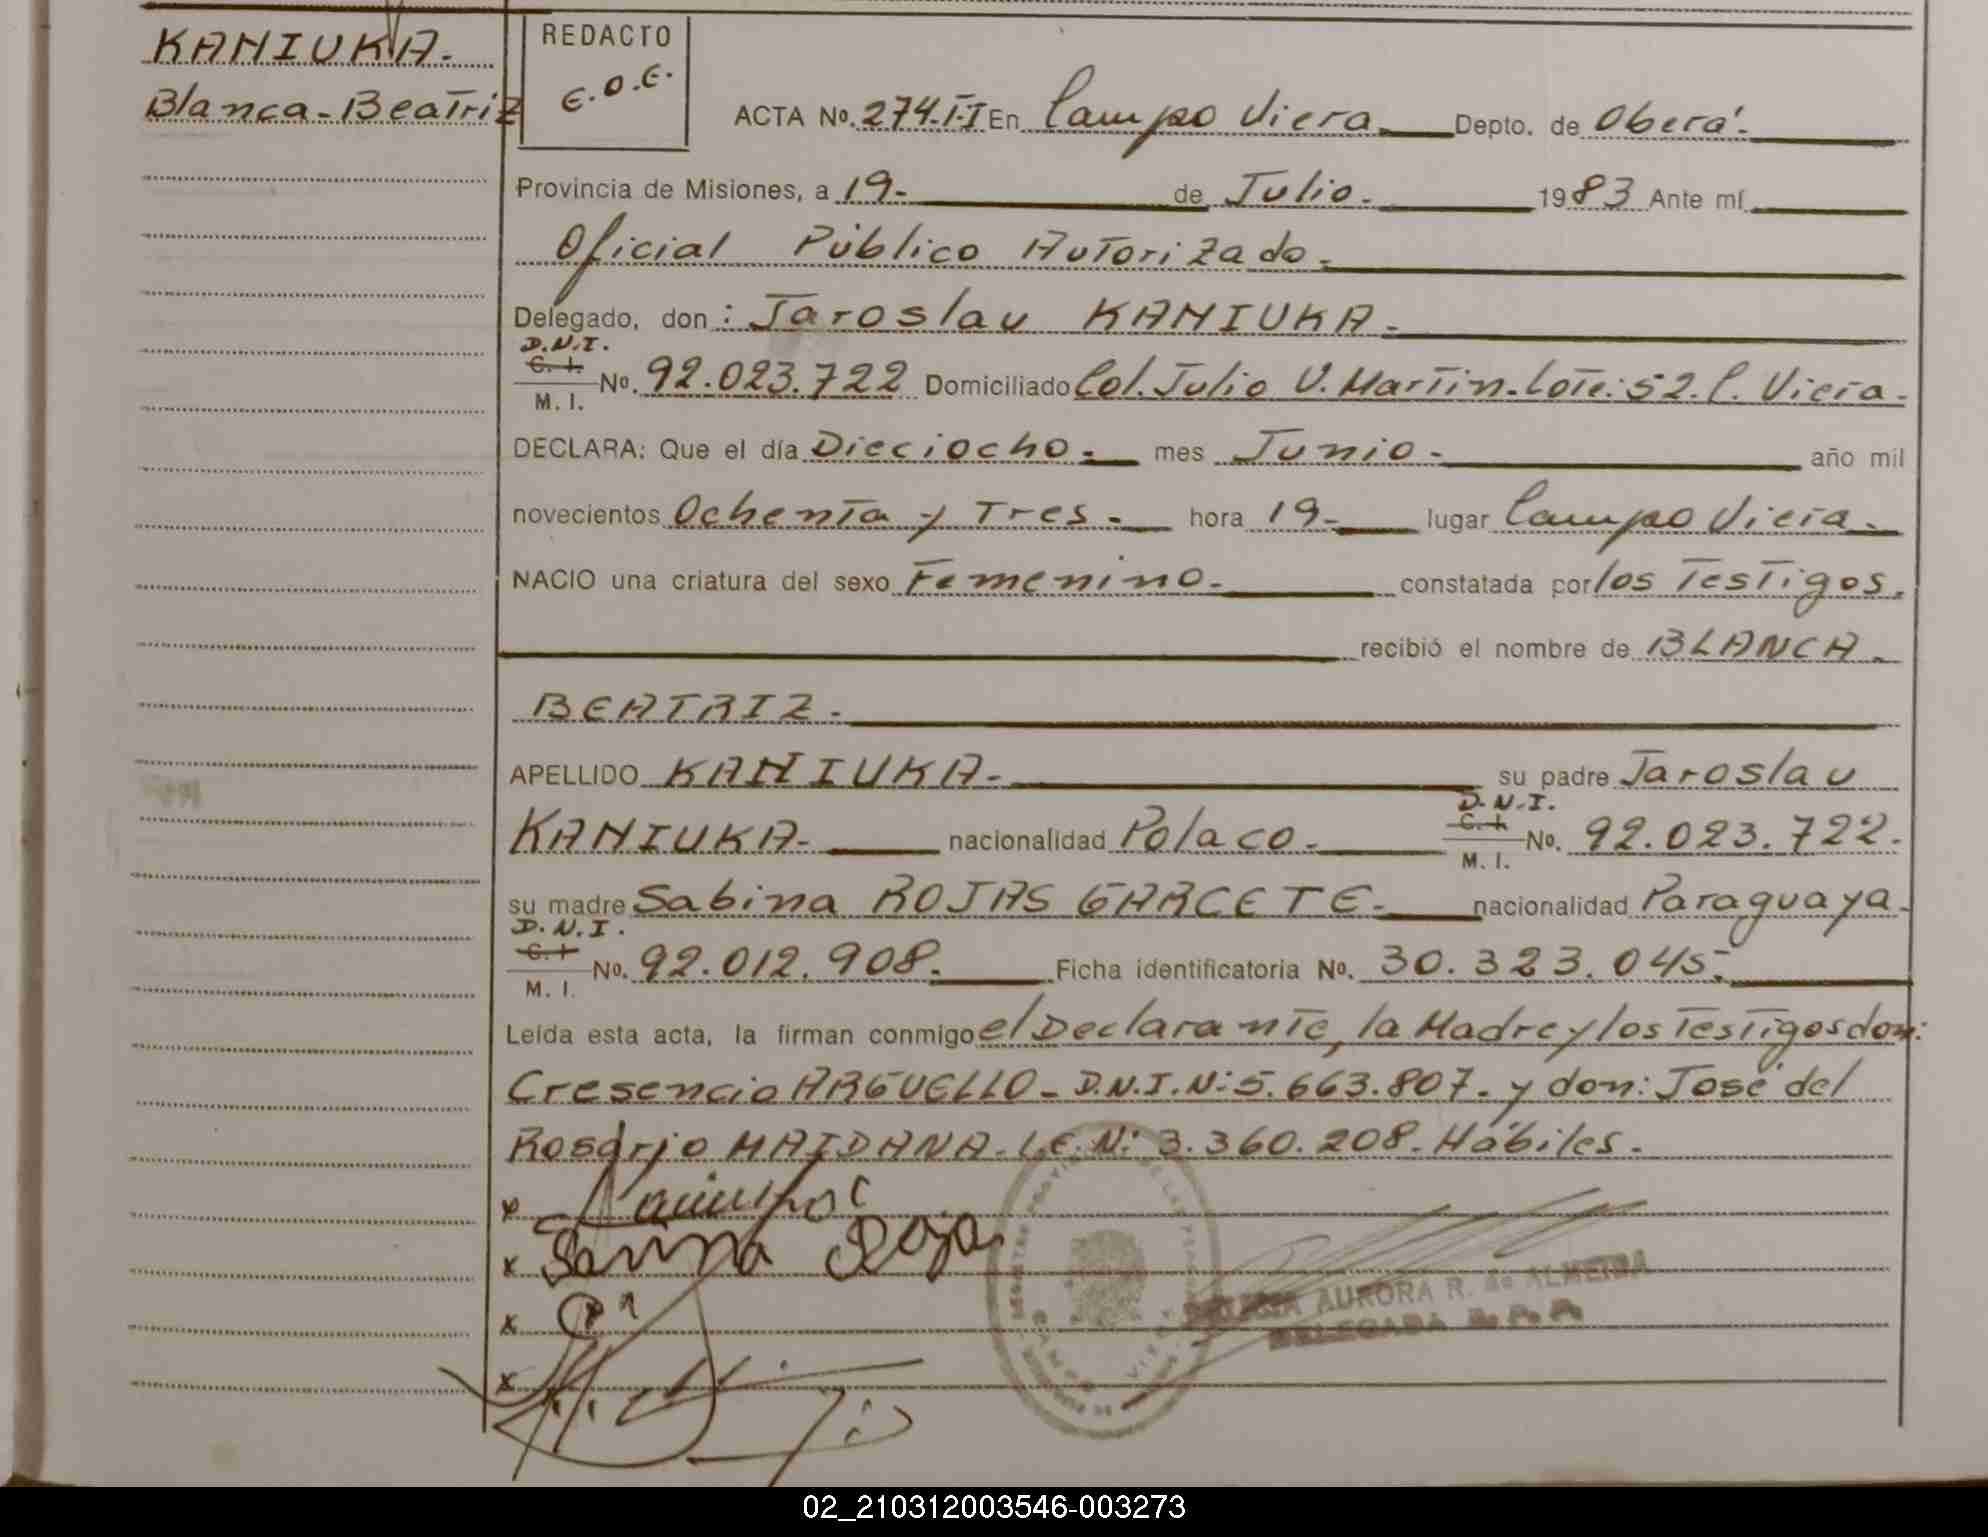 KANIUKA.
Blanca-Beatriz
REDACTO
E.O.E.
ACTA No. 274-T-I En Campo Viera. Depto. de Oberá.
Provincia de Misiones, a 19- de Julio. 1983 Ante mí
Oficial Público Autorizado.
Delegado, don: Jaroslau KANIUKA.
D.N.I.
C. I.
M. I.
No. 92.023.722 Domiciliado Col. Julio U. Martin. Lote: 52. C. Viera.
DECLARA: Que el día Dieciocho. mes Junio. año mil
novecientos Ochenta y Tres. hora 19- lugar Campo Viera.
NACIO una criatura del sexo Femenino. constatada por los Testigos.
recibió el nombre de BLANCA.
BEATRIZ.
APELLIDO KANIUKA. su padre Jaroslau
D.N.I.
KANIUKA. nacionalidad Polaco. C. I. No. 92.023.722.
M. I.
su madre Sabina ROJAS GARCETE. nacionalidad Paraguaya.
D.N.I.
C. I.
M. I.
No. 92.012.908. Ficha identificatoria No. 30.323.045.
Leída esta acta, la firman conmigo el Declarante, la Madre y los Testigos don:
Cresencio ARGUELLO - D.N.I.N: 5.663.807. y don: José del
Rosario MAIDANA. L.E.N: 3.360.208. Hábiles.
x
x Rojas
x
x
AURORA R. de ALMEIDA
DELEGADA
02_210312003546-003273